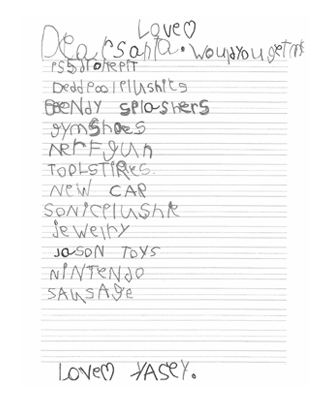 Love
Dear santa. Woudyou get me
Deddpoolplushits
BeNdy splashers
gymshoes
NerFgun
TOOLSTIRRS.
NEW CAR
SoNicelushie
jeweiry
JASON TOYS
NiNTENdo
SAUSAGe
Love YASEY.